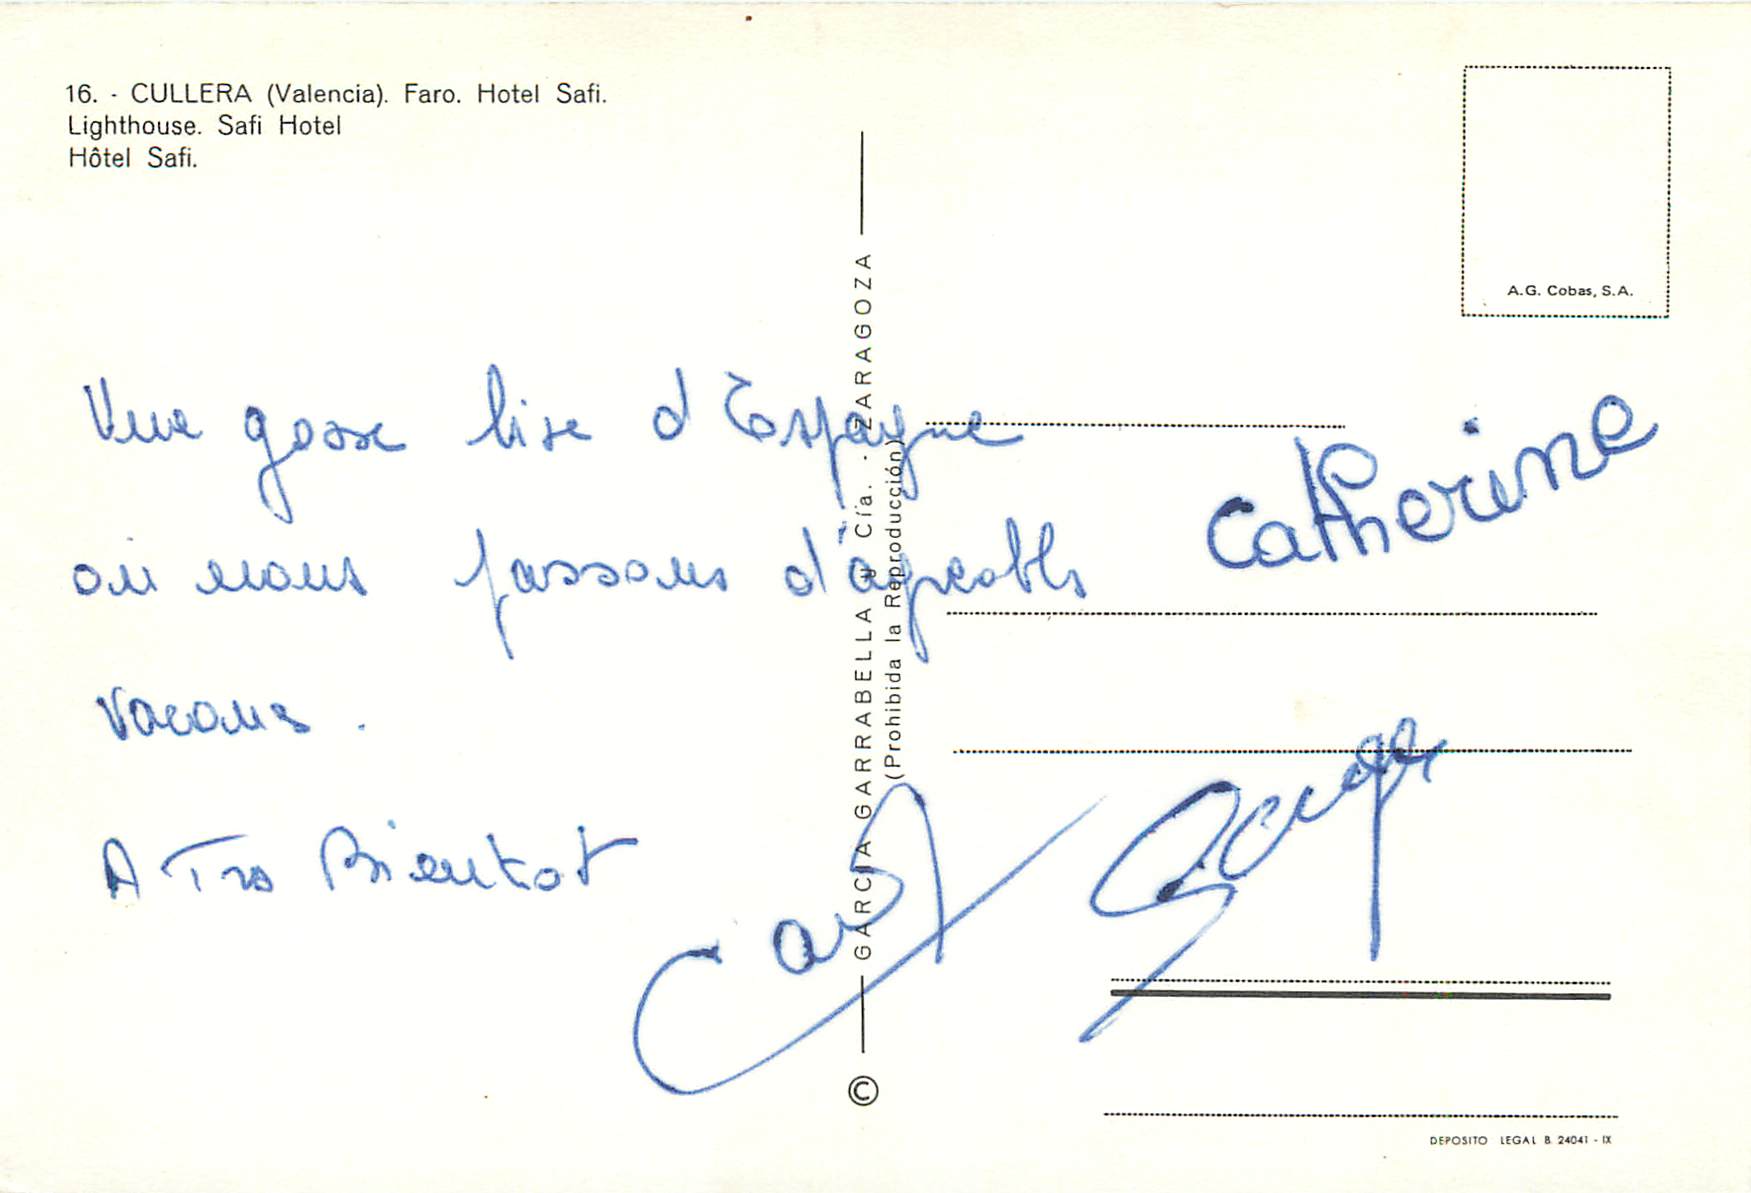 16. - CULLERA (Valencia). Faro. Hotel Safi.
Lighthouse. Safi Hotel
Hôtel Safi.
A.G. Cobas, S.A.
Une gosse bise d'Espagne
ou nous passons d'agreables
vacans.
A Tres Bientot
Catherine
GARCIA GARRABELLA y Cía. - ZARAGOZA
(Prohibida la Reproducción)
©
DEPOSITO LEGAL B. 24041 - IX